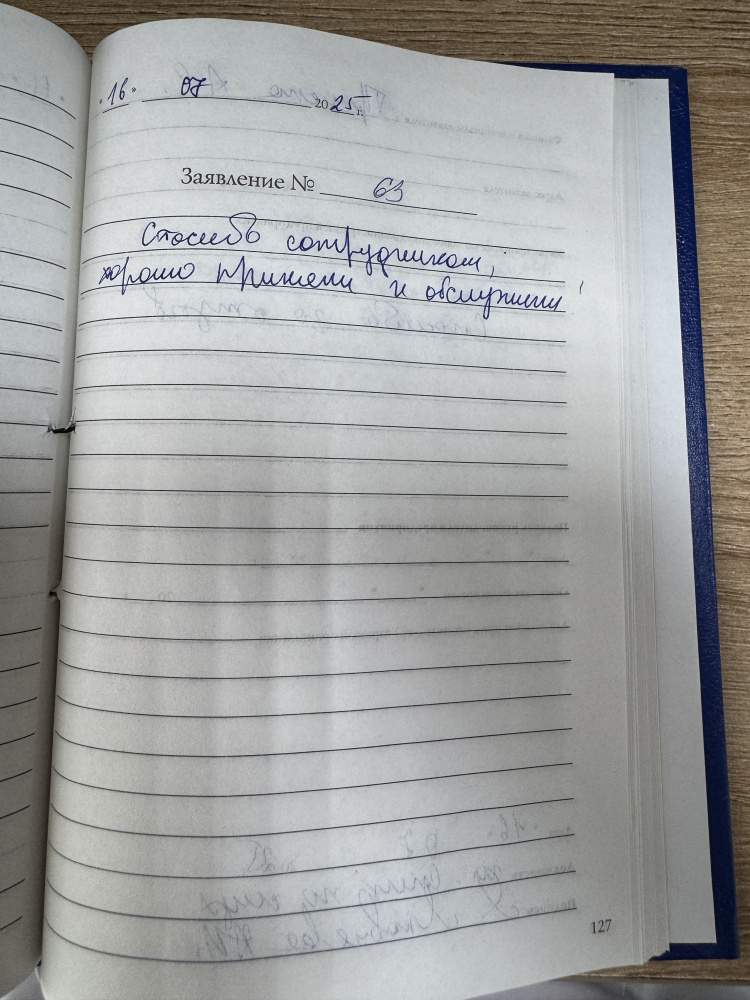 "16" 07 2025 г.
Заявление № 63
Спасибо сотрудникам,
хорошо приняли и обслужили!
127